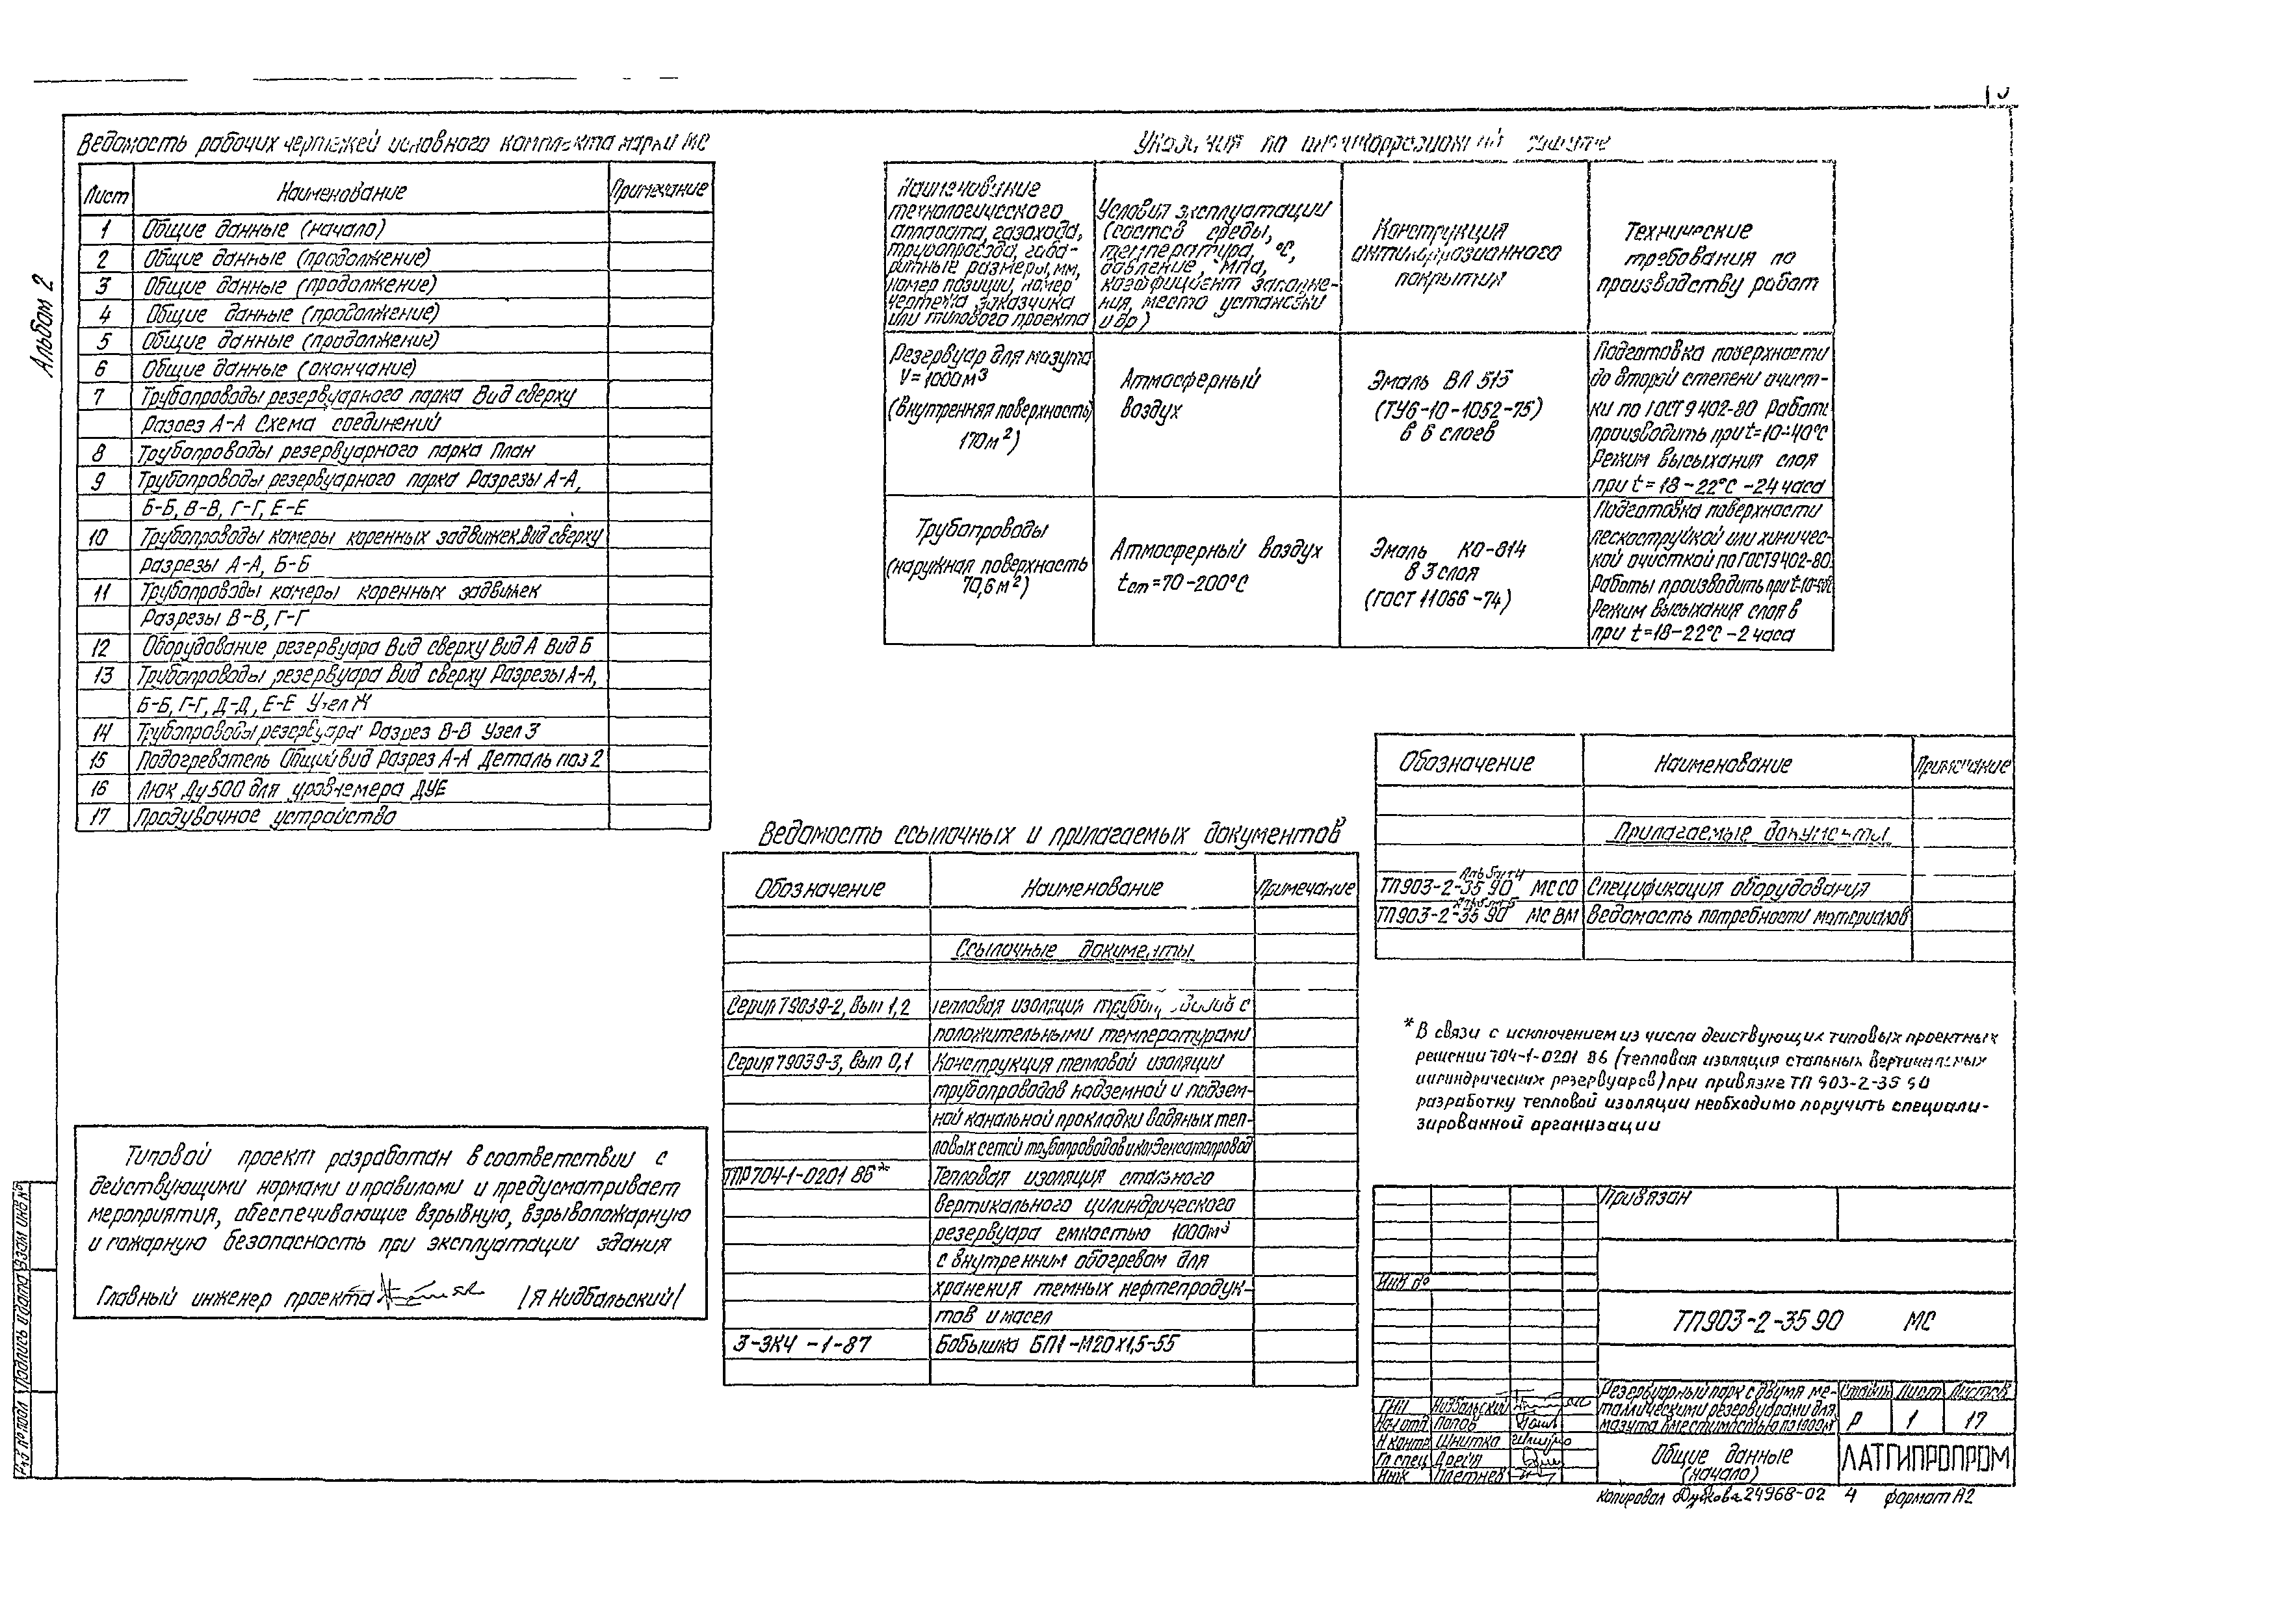 Альбом 2
Ведомость рабочих чертежей основного комплекта марки МС
Лист Наименование Примечание
1 Общие данные (начало)
2 Общие данные (продолжение)
3 Общие данные (продолжение)
4 Общие данные (продолжение)
5 Общие данные (продолжение)
6 Общие данные (окончание)
7 Трубопроводы резервуарного парка Вид сверху
Разрез А-А Схема соединений
8 Трубопроводы резервуарного парка План
9 Трубопроводы резервуарного парка Разрезы А-А,
Б-Б, В-В, Г-Г, Е-Е
10 Трубопроводы камеры коренных задвижек.Вид сверху
разрезы А-А, Б-Б
11 Трубопроводы камеры коренных задвижек
Разрезы В-В, Г-Г
12 Оборудование резервуара Вид сверху Вид А Вид Б
13 Трубопроводы резервуара Вид сверху Разрезы А-А,
Б-Б, Г-Г, Д-Д, Е-Е Узел Ж
14 Трубопроводы резервуара Разрез В-В Узел 3
15 Подогреватель Общий вид Разрез А-А Деталь поз 2
16 Люк Ду 500 для уровнемера ДУЕ
17 Продувочное устройство
Указания по антикоррозионной защите
Наименование
технологического
аппарата, газохода,
трубопровода, габа-
ритные размеры, мм,
номер позиции, номер
чертежа заказчика
или типового проекта
Условия эксплуатации
(состав среды,
температура, °С,
давление, МПа,
коэффициент заполне-
ния, место установки
и др)
Конструкция
антикоррозионного
покрытия
Технические
требования по
производству работ
Резервуар для мазута
V=1000м³
(внутренняя поверхность
170м²)
Атмосферный
воздух
Эмаль ВЛ 515
(ТУ6-10-1052-75)
в 6 слоев
Подготовка поверхности
до второй степени очист-
ки по ГОСТ 9 402-80 Работы
производить при t=10-40°С
Режим высыхания слоя
при t = 18-22°С -24 часа
Трубопроводы
(наружная поверхность
70,6м²)
Атмосферный воздух
tст=70-200°С
Эмаль КО-814
в 3 слоя
(ГОСТ 11066-74)
Подготовка поверхности
пескоструйкой или химичес-
кой очисткой по ГОСТ 9 402-80.
Работы производить при
Режим высыхания слоя в
при t=18-22°С -2 часа
Обозначение Наименование Примечание
Прилагаемые документы
Альбом 4
ТП 903-2-35 90 МС СО Спецификация оборудования
ТП 903-2-35 90 МС ВМ Ведомость потребности материалов
Ведомость ссылочных и прилагаемых документов
Обозначение Наименование Примечание
Ссылочные документы
Серия 7 9039-2, Вып 1,2 Тепловая изоляция трубопроводов с
положительными температурами
Серия 7 9039-3, Вып 0,1 Конструкция тепловой изоляции
трубопроводов надземной и подзем-
ной канальной прокладки водяных теп-
ловых сетей трубопроводов и конденсатопровод
ТПР 704-1-0201 86* Тепловая изоляция стального
вертикального цилиндрического
резервуара емкостью 1000м³
с внутренним обогревом для
хранения темных нефтепродук-
тов и масел
3-ЗК4 -1-87 Бобышка БП1-М20х1,5-55
* В связи с исключением из числа действующих типовых проектных
решений 704-1-0201 86 (тепловая изоляция стальных вертикальных
цилиндрических резервуаров) при привязке ТП 903-2-35 90
разработку тепловой изоляции необходимо поручить специали-
зированной организации
Типовой проект разработан в соответствии с
действующими нормами и правилами и предусматривает
мероприятия, обеспечивающие взрывную, взрывопожарную
и пожарную безопасность при эксплуатации здания
Главный инженер проекта /Я Нидбальский/
Привязан
Инв №
ТП 903-2-35 90 МС
Резервуарный парк с двумя ме-
таллическими резервуарами для
мазута вместимостью по 1000м³
Стадия Лист Листов
Р 1 17
ГИП Нидбальский
Нач отд Попов
Н контр Шнитка
Гл спец
Инж Плетнев
Общие данные
(начало)
ЛАТГИПРОПРОМ
Копировал 24968-02 4 формат А2
Инв № подл Подпись и дата Взам инв №